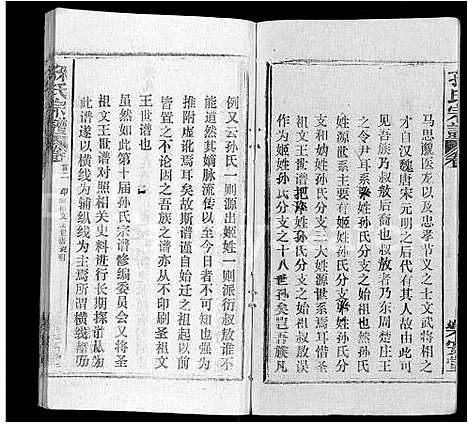 马思邈医龙以及忠孝节义之士文武将相之
才自汉魏唐宋元明之后代有其人故由此可
以说为叔敖后裔也叔敖者乃东周楚庄王
之令尹耳系孙氏分支之始祖也然孙氏分
姓源世系主要有姬姓孙氏分支妫姓孙氏分
支和芈姓孙氏分支三大姓源世系焉耳惜圣
祖文王世谱把孙姓孙氏分支之始祖叔敖
作为姬姓孙氏分支之十八世孙矣岂吾族凡
例又云孙氏一则源出姬姓一则派衍叔敖谁不
能道然其嫡脉流传以至于今者不可知也强为
推附虚讹焉耳矣故斯谱谨自始迁之祖起以前
皆置之不论因之吾族之谱亦从不印刷圣祖文
王世谱也
虽然如此第十届孙氏宗谱修编委员会又将圣
祖文王世谱对照相关史料进行长期探
此谱遂以横线为辅纵线为主焉所谓横线
孙氏宗谱